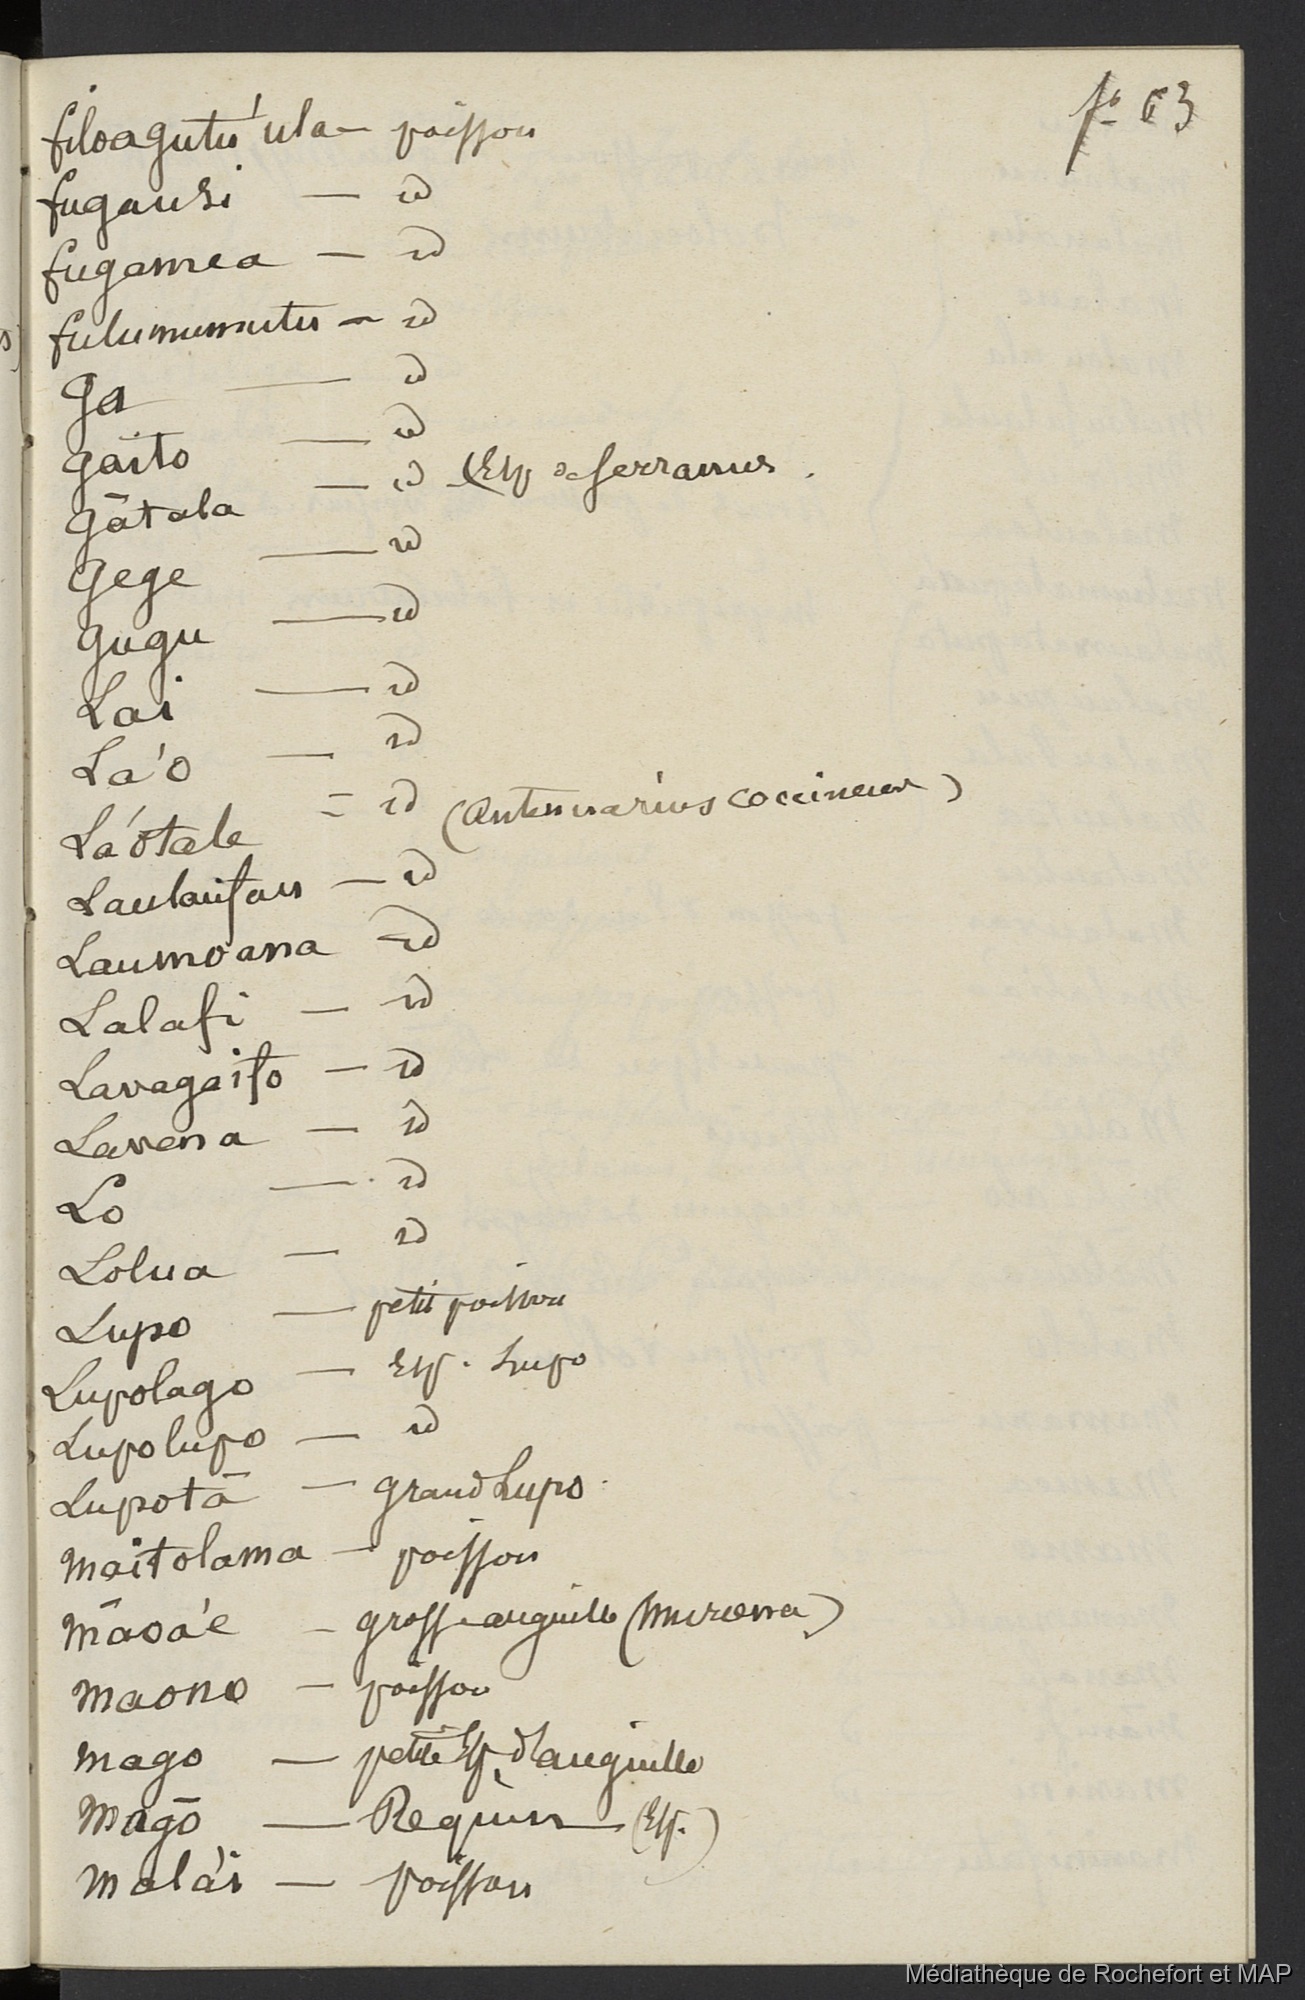 fo 63
filoagutu'ula — poisson
fugausi — id
fugamea — id
fulumumutu — id
Ga — id
gaito — id
gātala — id (Esp de serranus.
gege — id
gugu — id
Lai — id
La'o — id
La'otale = id (Antennarius coccineus)
Laulaufau — id
Laumoana — id
Lalafi — id
Lavagaito — id
Lavena — id
Lo — id
Lolua — id
Lupo — petit poisson
Lupolago — Esp. Lupo
Lupolupo — id
Lupotā — grand Lupo
maitolama — poisson
māoa'e — grosse anguille (muroena)
maono — poisson
mago — petite Esp. d'anguille
magō — Requin — (Esp.)
mala'i — poisson
Médiathèque de Rochefort et MAP